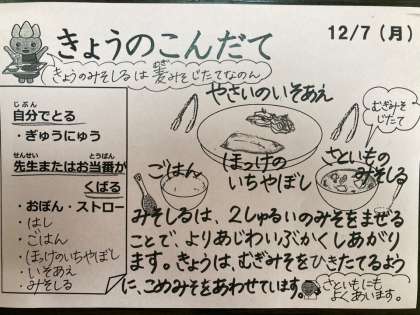 きょうのこんだて
12/7（月）
きょうのみそしるは 麦みそじたてなのん
自分でとる
じぶん
・ぎゅうにゅう
先生またはお当番が
せんせい
とうばん
くばる
・おぼん・ストロー
・はし
・ごはん
・ほっけのいちやぼし
・いそあえ
・みそしる
やさいのいそあえ
むぎみそ
じたて
ごはん
ほっけの
いちやぼし
さといもの
みそしる
みそしるは、2しゅるいのみそをまぜる
ことで、よりあじわいぶかくしあがり
ます。きょうは、むぎみそをひきたてるよう
に、こめみそをあわせています。
さといもにも
よくあいます。